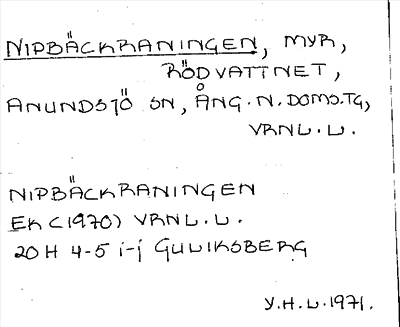 NIPBÄCKRANINGEN, MYR,
RÖDVATTNET,
ANUNDSJÖ SN, ÅNG. N. DOMS.TG,
VRNL. L.
NIPBÄCKRANINGEN
EK (1970) VRNL. L.
20 H 4-5 i-j GULIKSBERG
Y. H. L. 1971.